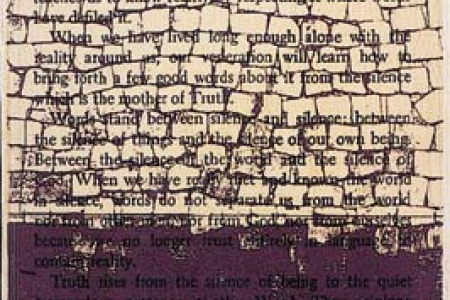 to know
have defiled it.
When we have lived long enough alone with the
reality around us, our veneration will learn how to
bring forth a few good words about it from the silence
which is the mother of Truth.
Words stand between silence and silence: between
the silence of things and the silence of our own being.
Between the silence of the world and the silence of
When we have really met and known the world
in silence, words do not separate us from the world
nor from other men, nor from God, nor from ourselves
because we no longer trust entirely in language to
contain reality.
Truth rises from the silence of being to the quiet